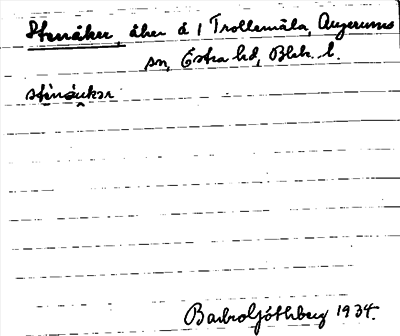 Stenåker, åker å 1 Trollemåla, Augerums
sn, Östra hd, Blek. l.
stènåukər
Barbro Göthberg 1934.